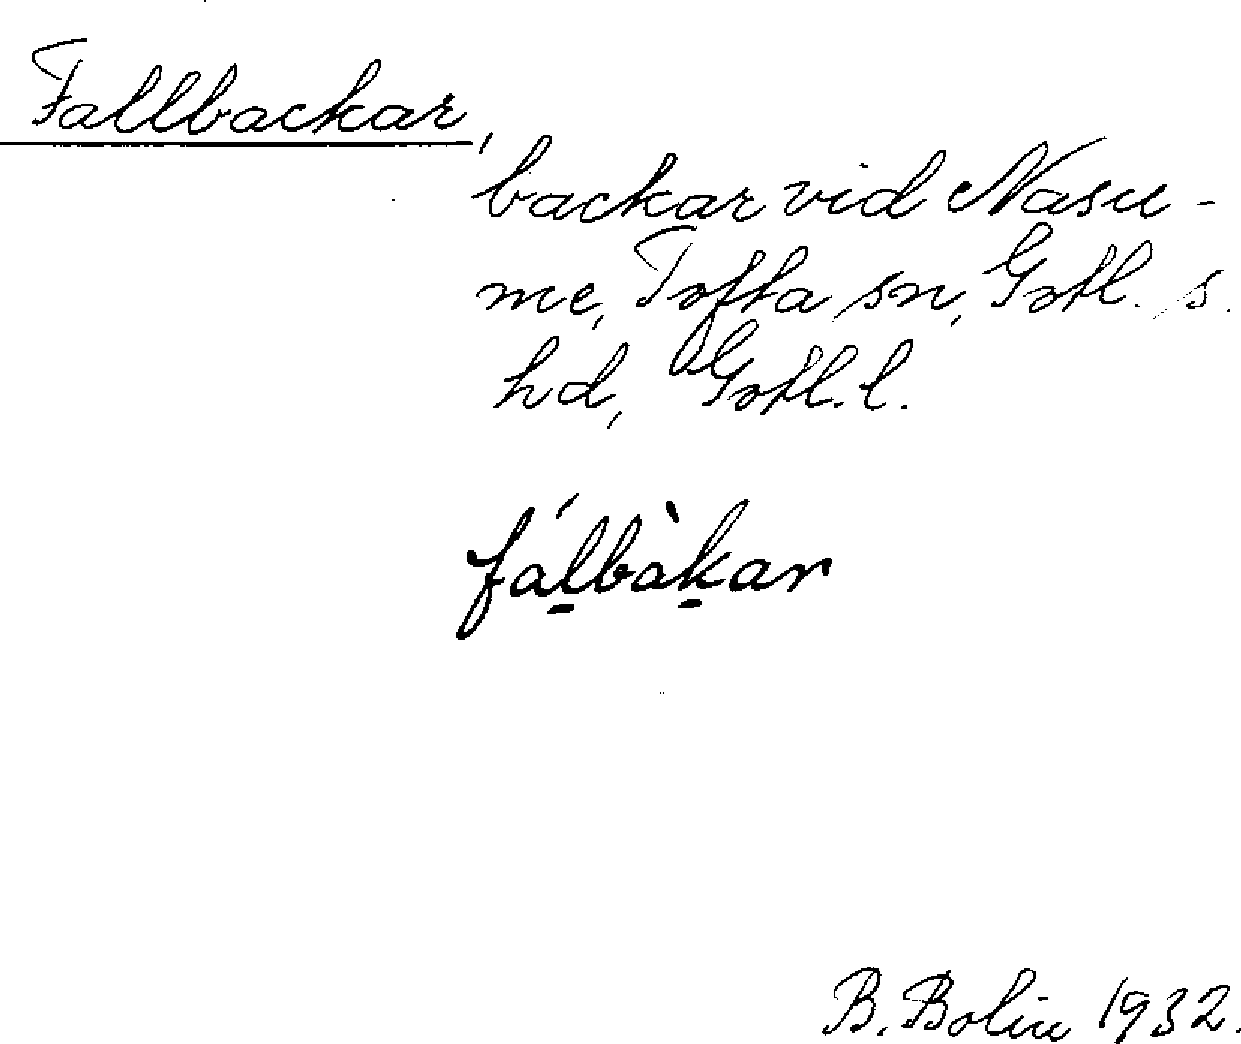 Fallbackar,
backar vid Nasu-
me, Tofta sn, Gotl. s.
hd, Gotl. l.
fál̲bàk̲ar
B. Bolin 1932.